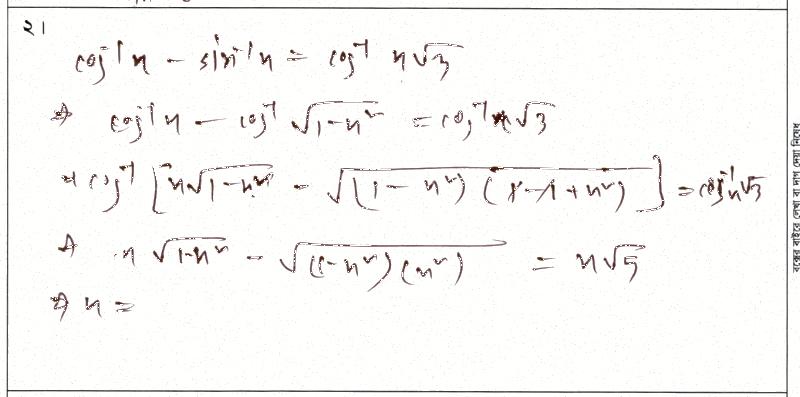 ২।
cos⁻¹x - sin⁻¹x = cos⁻¹ x√3
⇒ cos⁻¹x - cos⁻¹ √1-x² = cos⁻¹ x√3
⇒ cos⁻¹ [x√1-x² - √(1-x²)(1-1+x²)] = cos⁻¹ x√3
⇒ x √1-x² - √(1-x²)(x²) = x√5
⇒ x =
বক্সের বাইরে লেখা বা দাগ দেয়া নিষেধ